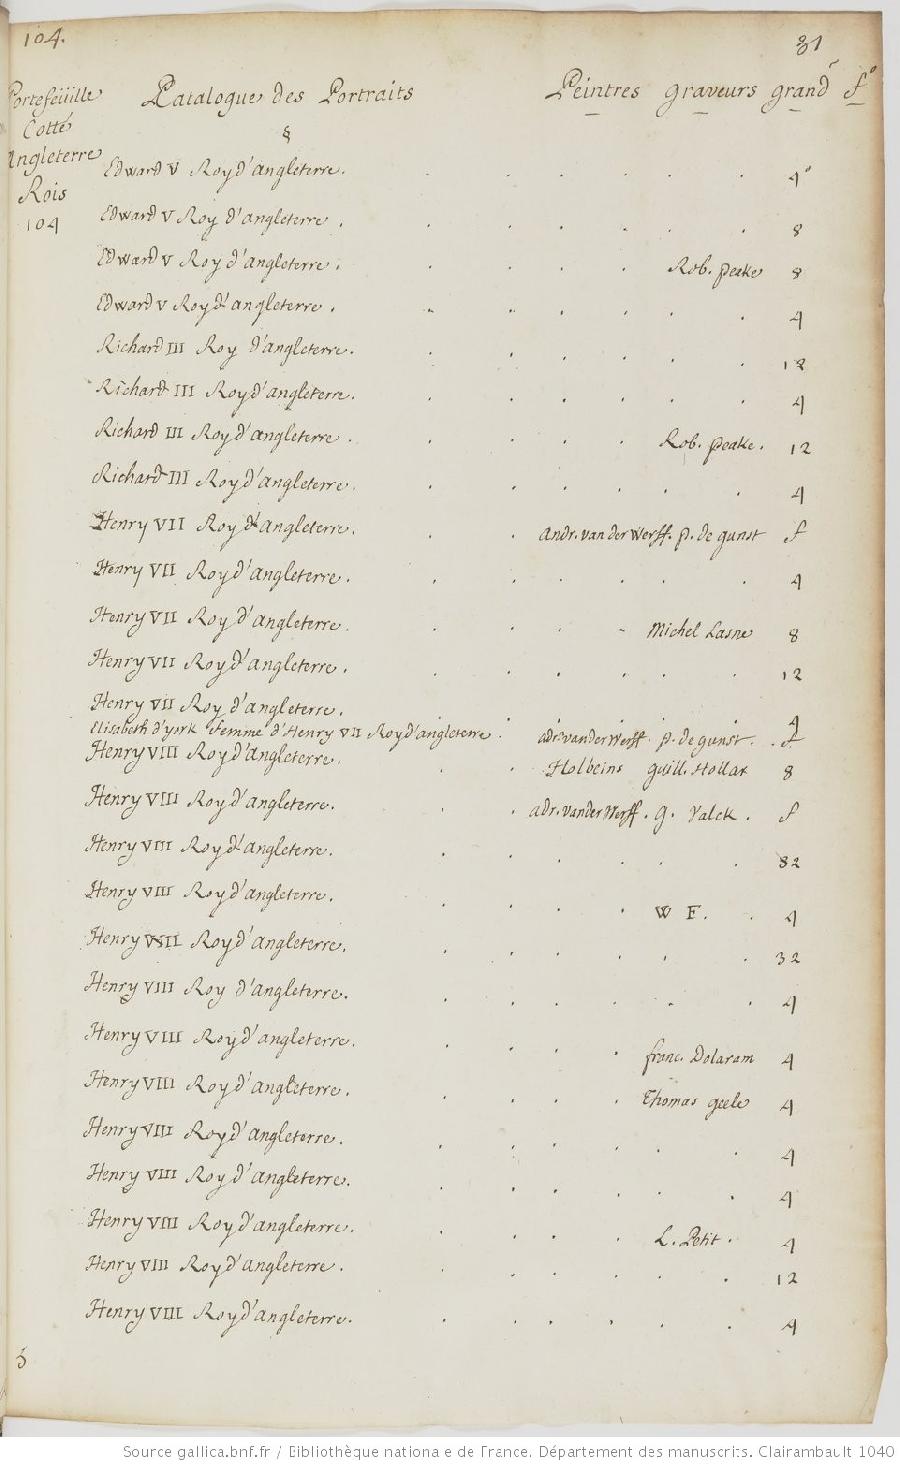 104.
31
Portefeüille Cotté Angleterre Rois 104
Catalogue des Portraits Peintres graveurs grandr fo
§
Edward V Roy d'angleterre. 4o
Edward V Roy d'angleterre. 8
Edward V Roy d'angleterre. Rob. peake 8
Edward V Roy d'angleterre. 4
Richard III Roy d'angleterre. 12
Richard III Roy d'angleterre. 4
Richard III Roy d'angleterre. Rob. peake. 12
Richard III Roy d'angleterre. 4
Henry VII Roy d'angleterre. andr. van der Werff. p. de gunst f
Henry VII Roy d'angleterre. 4
Henry VII Roy d'angleterre. Michel Lasne 8
Henry VII Roy d'angleterre. 12
Henry VII Roy d'angleterre. 4
Elisabeth d'york femme d'Henry VII Roy d'angleterre. adr. vander Werff p. de gunst. f
Henry VIII Roy d'angleterre. Holbeins guill. Hollar 8
Henry VIII Roy d'angleterre. adr. vander Werff. g. Valck. f
Henry VIII Roy d'angleterre. 32
Henry VIII Roy d'angleterre. W F. 4
Henry VIII Roy d'angleterre. 32
Henry VIII Roy d'angleterre. 4
Henry VIII Roy d'angleterre. franc. Dolaram 4
Henry VIII Roy d'angleterre. Thomas geele 4
Henry VIII Roy d'angleterre. 4
Henry VIII Roy d'angleterre. 4
Henry VIII Roy d'angleterre. L. Petit. 4
Henry VIII Roy d'angleterre. 12
Henry VIII Roy d'angleterre. 4
5
Source gallica.bnf.fr / Bibliothèque nationale de France. Département des manuscrits. Clairambault 1040